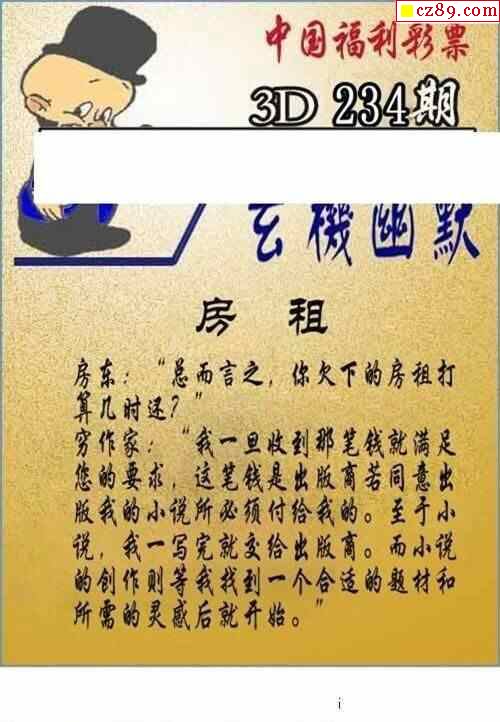 cz89.com
中国福利彩票
3D 234期
玄機幽默
房 租
房东：“总而言之，你欠下的房租打
算几时还？”
穷作家：“我一旦收到那笔钱就满足
您的要求，这笔钱是出版商若同意出
版我的小说所必须付给我的。至于小
说，我一写完就交给出版商。而小说
的创作则等我找到一个合适的题材和
所需的灵感后就开始。”
i